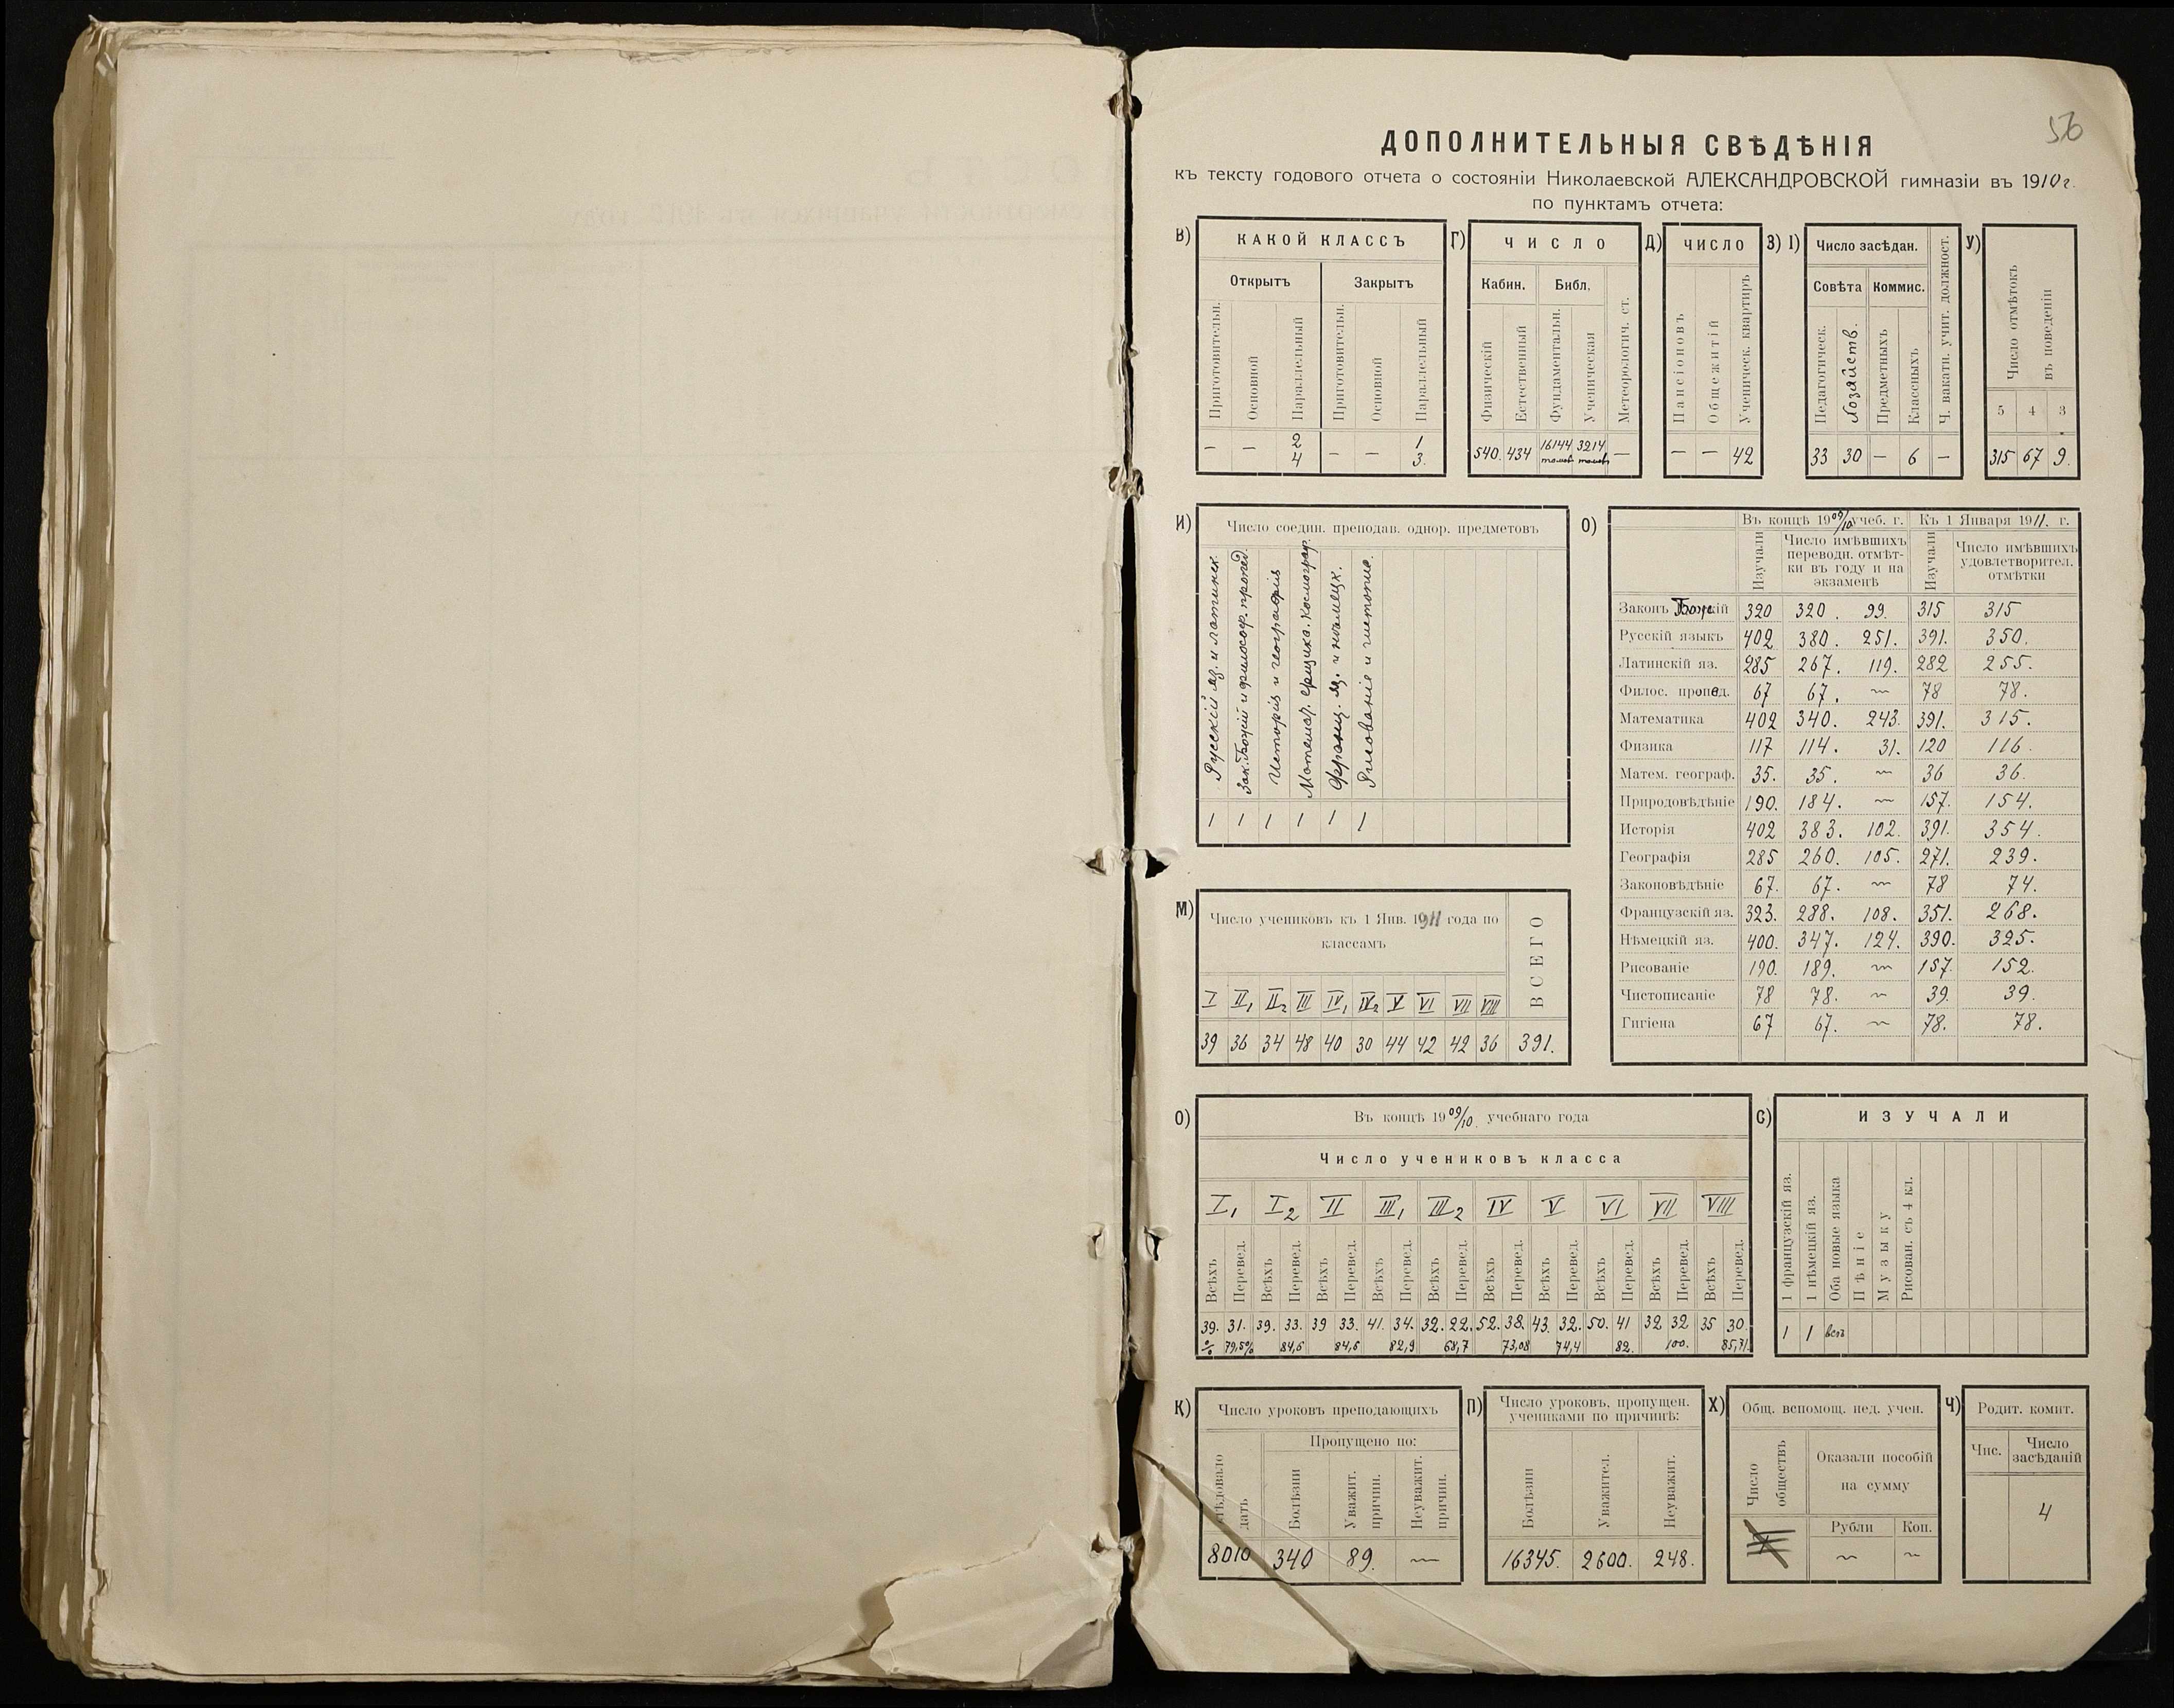 56
ДОПОЛНИТЕЛЬНЫЯ СВѢДѢНІЯ
къ тексту годового отчета о состояніи Николаевской АЛЕКСАНДРОВСКОЙ гимназіи въ 1910 г.
по пунктамъ отчета:
В)
КАКОЙ КЛАССЪ
Открытъ Закрытъ
Приготовительн. Основной Параллельный Приготовительн. Основной Параллельный
— — 2 — — 1
4 3.
Г)
ЧИСЛО
Кабин. Библ.
Физическій Естественный Фундаментальн. Ученическая Метеорологич. ст.
540. 434 16144 3214 —
томов томов
Д)
ЧИСЛО
Пансіоновъ Общежитій Ученическ. квартиръ
— — 42
З) І)
Число засѣдан. Ч. вакатн. учит. должност.
Совѣта Коммис.
Педагогическ. Хозяйств. Предметныхъ Класныхъ
33 30 — 6 —
У)
Число отмѣтокъ
въ поведеніи
5 4 3
315 67 9.
И)
Число соедин. преподав. однор. предметовъ
Русскій яз. и латинск.
Зак. Божій и философ. пропед.
Исторія и географія
Математ. физика. Космограф.
Франц. яз. и нѣмецк.
Рисованіе и чистопис.
1 1 1 1 1 1
О)
Въ концѣ 1909/10 учеб. г. Къ 1 Января 1911. г.
Изучали Число имѣвшихъ переводн. отмѣт-ки въ году и на экзаменѣ Изучали Число имѣвшихъ удовлетворител. отмѣтки
Законъ Божій 320 320. 99. 315 315
Русскій языкъ 402 380. 251. 391. 350.
Латинскій яз. 285 267. 119. 282 255.
Филос. пропед. 67 67. — 78 78.
Математика 402 340. 243. 391. 315.
Физика 117 114. 31. 120 116.
Матем. географ. 35. 35. — 36 36.
Природовѣдѣніе 190. 184. — 157. 154.
Исторія 402 383. 102. 391. 354.
Географія 285 260. 105. 271. 239.
Законовѣдѣніе 67. 67. — 78 74.
Французскій яз. 323. 288. 108. 351. 268.
Нѣмецкій яз. 400. 347. 124. 390. 325.
Рисованіе 190. 189. — 157. 152.
Чистописаніе 78 78. — 39. 39.
Гигіена 67 67. — 78. 78.
М)
Число учениковъ къ 1 Янв. 1911 года по
классамъ
ВСЕГО
I II1 II2 III IV1 IV2 V VI VII VIII
39 36 34 48 40 30 44 42 42 36 391.
О)
Въ концѣ 1909/10. учебнаго года
Число учениковъ класса
I1 I2 II III1 III2 IV V VI VII VIII
Всѣхъ Перевед. Всѣхъ Перевед. Всѣхъ Перевед. Всѣхъ Перевед. Всѣхъ Перевед. Всѣхъ Перевед. Всѣхъ Перевед. Всѣхъ Перевед. Всѣхъ Перевед. Всѣхъ Перевед.
39. 31. 39. 33. 39 33. 41. 34. 32. 22. 52. 38. 43. 32. 50. 41 32 32 35 30.
% 79,5% 84,6 84,6 82,9 68,7 73,08 74,4 82. 100. 85,71.
С)
ИЗУЧАЛИ
1 французскій яз. 1 нѣмецкій яз. Оба новые языка Пѣніе Музыку Рисован. съ 4 кл.
1 1 всѣ
К)
Число уроковъ преподающихъ
Слѣдовало дать Пропущено по:
Болѣзни Уважит. причин. Неуважит. причин.
8010 340 89. —
П)
Число уроковъ, пропущен.
учениками по причинѣ:
Болѣзни Уважител. Неуважит.
16345. 2600. 248.
Х)
Общ. вспомощ. нед. учен.
Число обществъ Оказали пособій
на сумму
Рубли Коп.
— —
Ч)
Родит. комит.
Чис. Число засѣданій
4